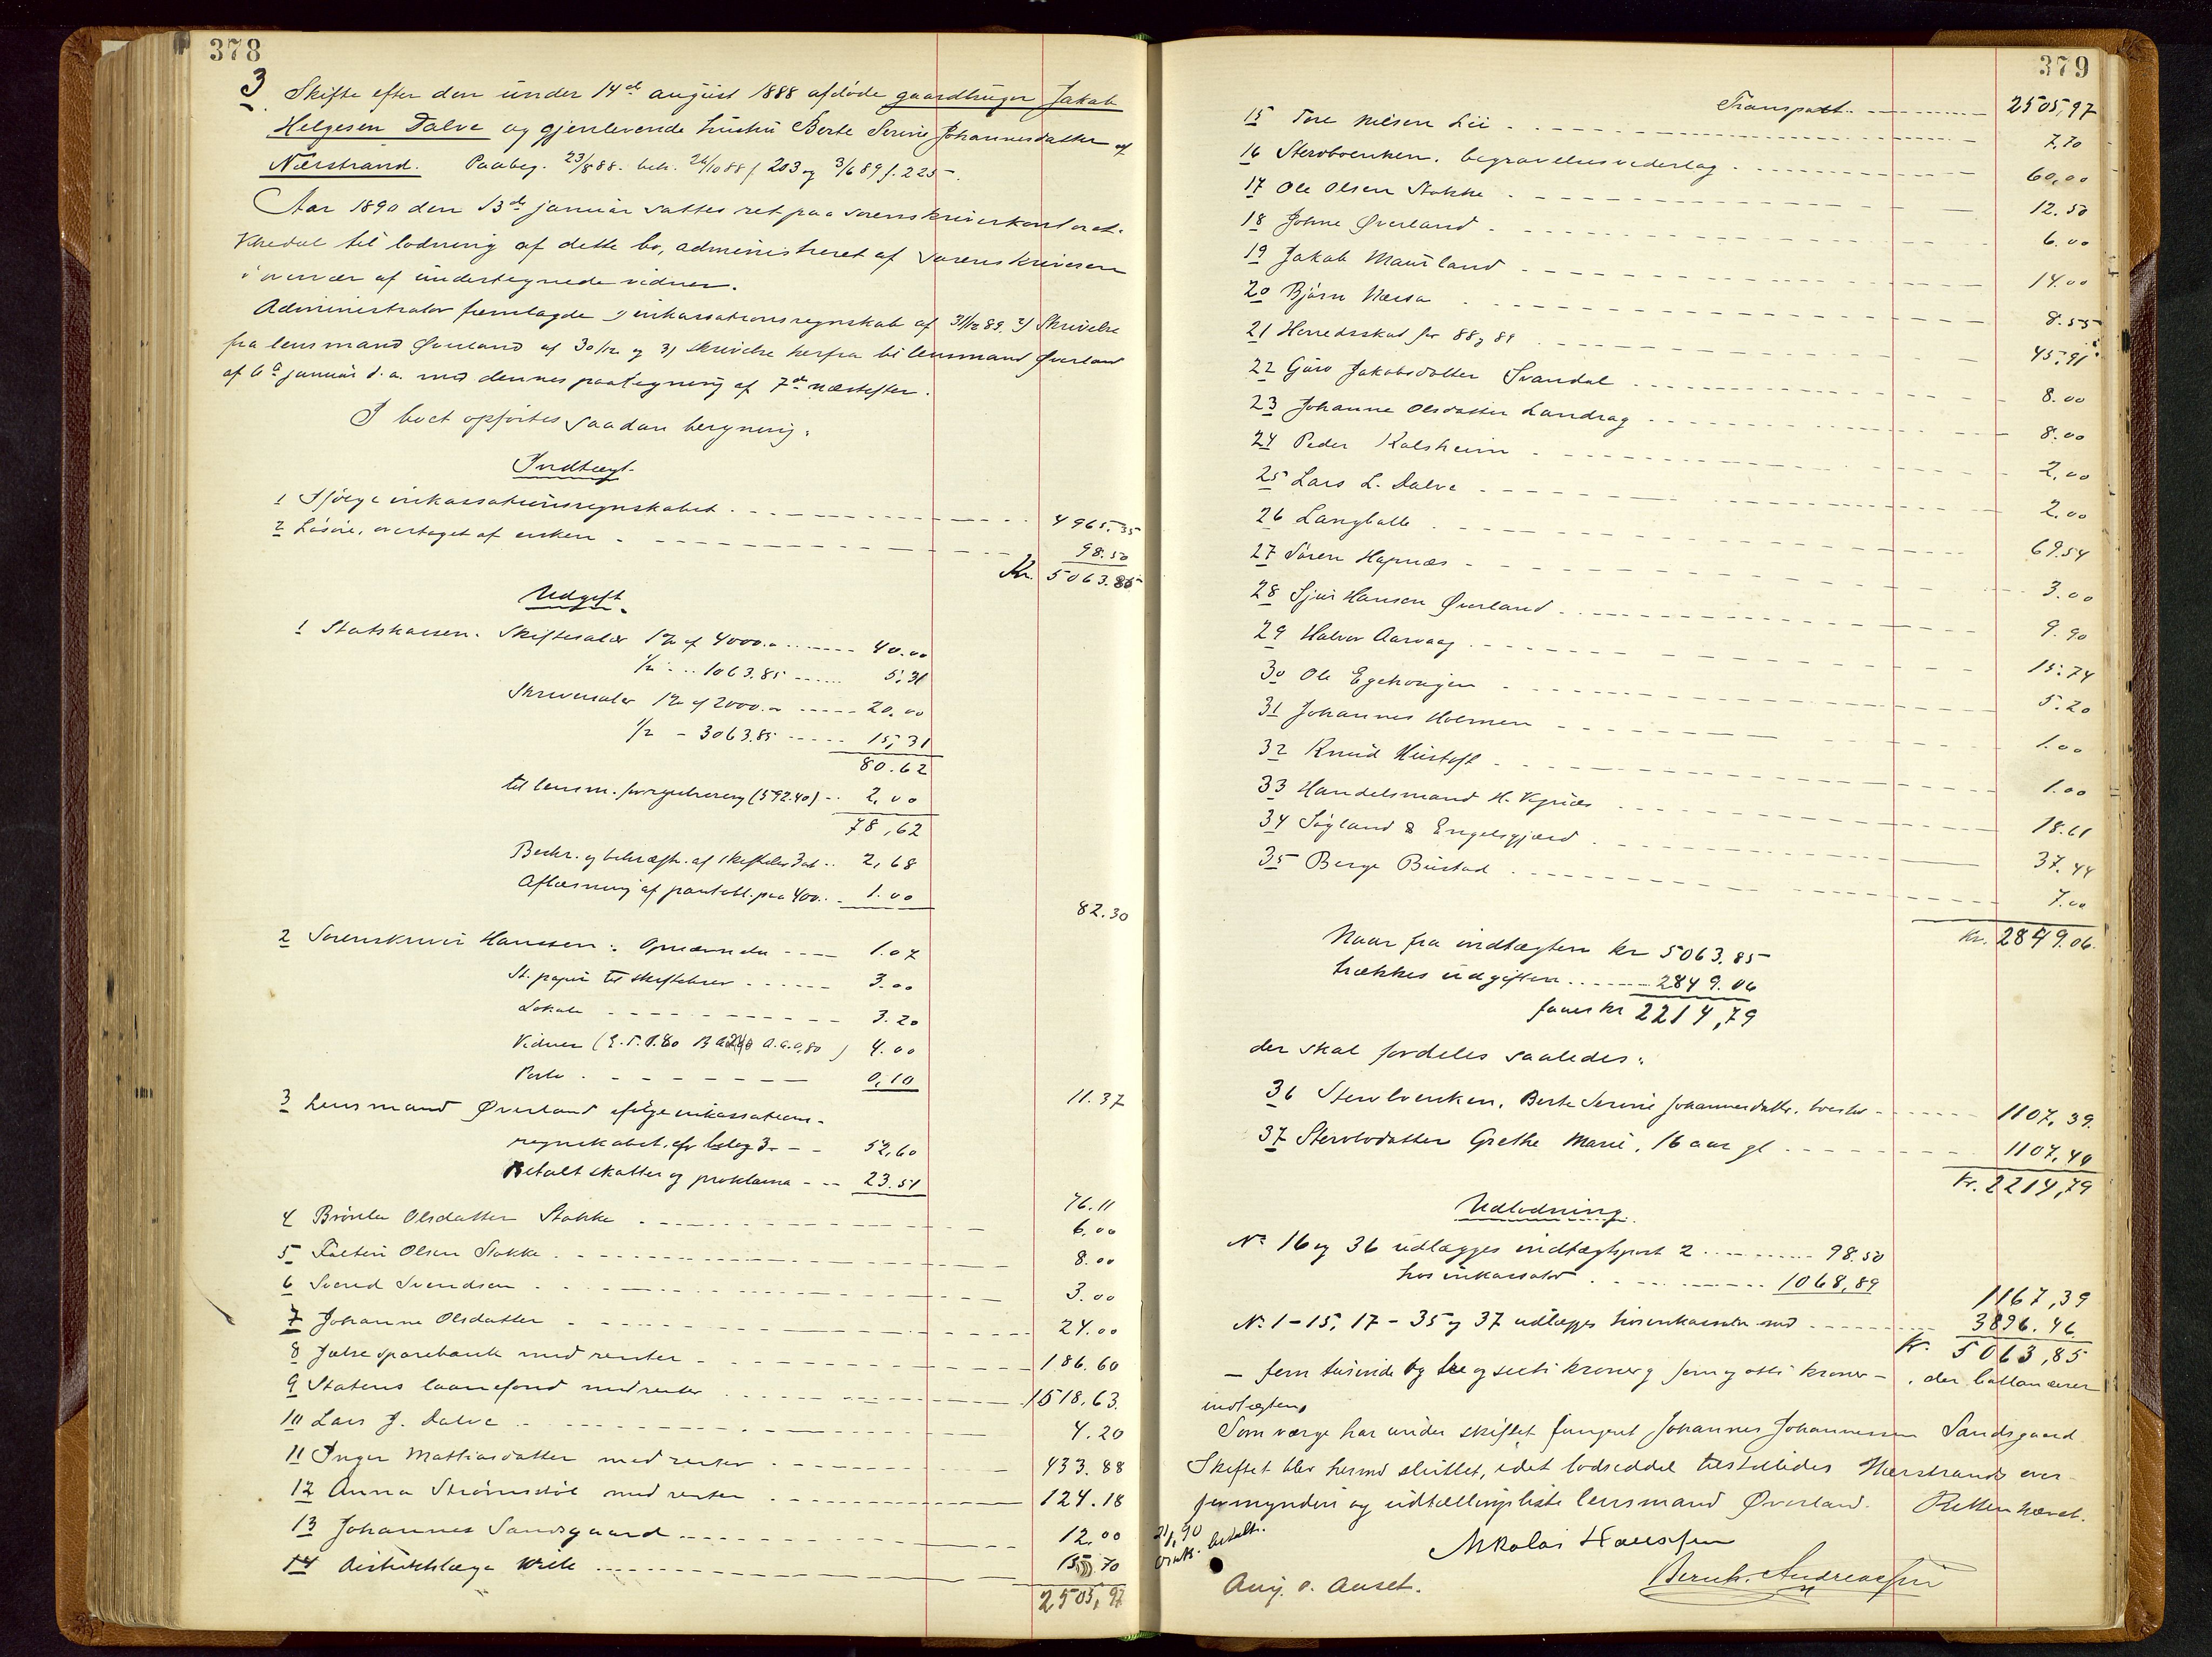 378
3 Skifte efter den under 14de august 1888 afdøde gaardbruger Jakob
Helgesen Dalve og gjenlevende hustru Berte Serine Johannesdatter af
Nærstrand. Paabeg. 23/8 88. beh. 26/10 88 f 203 og 3/6 89 f. 225-.
Aar 1890 den 13de januar sattes ret paa sorenskriverkontoret.
til lodning af dette bo, administreret af sorenskriveren
i overvær af undertegnede vidner.
Administrator fremlagde 1) inkassationsregnskab af 31/12 89. 2) Skrivelse
fra lensmand Øverland af 30/12 og 3) skrivelse herfra til lensmand Øverland
af 6te januar d.a. med dennes paategning af 7de næstefter.
I boet opførtes saadan beregning:
Indtægt.
1 Ifølge inkassationsregnskabet 4965.35
2 Løsøre, overtaget af enken 98.50
Kr. 5063.85
Udgift.
1 Statskassen. Skiftesalær 1% af 4000.- 40.00
1/2 - 1063.85 5.31
Skriversalær 1% af 2000.- 20.00
1/2 - 3063.85 15,31
80.62
til lensm. for registrering (592.40) 2,00
78,62
Beskr. og bekræft. af skiftebr. 3 ark 2,68
Aflæsning af pantobl. paa 400. 1.00
82.30
2 Sorenskriver Hanssen: 1.07
St. papir til skiftebrev 3.00
Lokale 3.20
Vidner 4.00
Porto 0,10
11.37
3 Lensmand Øverland ifølge inkassations-
regnskabet, bilag 3 52,60
Betalt skatter og proklama 23.51
76.11
4 Olsdatter Stokke 6,00
5 Olsen Stokke 8.00
6 Svend Svendsen 3.00
7 Johanne Olsdatter 24.00
8 Jælse sparebank med renter 186.60
9 Statens laanefond med renter 1518,63.
10 Lars J. Dalve 4.20
11 Inger Mathiasdatter med renter 433.88
12 Anna Strømstøl med renter 124.18
13 Johannes Sandsgaard 12,00
14 distriktslæge 15,70
2505,97
379
Transport 2505,97
15 Tore Nilsen Lii 7,70
16 Stervboenken. begravelsesvederlag 60,00
17 Ole Olsen Stokke 12.50
18 Johne Øverland 6.00
19 Jakob Mauland 14.00
20 Bjørn Næssa 8.55
21 Herredsskat for 88 og 89 45,91
22 Guro Jakobsdatter Svandal 8.00
23 Johanne Olsdatter Landrag 8.00
24 Peder Kolsheim 2,00
25 Lars L. Dalve 2.00
26 Langballe 69.54
27 Søren Hapnæs 3.00
28 Sjur Hansen Øverland 9.90
29 Halvor Aarvaag 15.74
30 Ole Egehougen 5.20
31 Johannes Holmen 1.00
32 Knud Hustoft 1.00
33 Handelsmand H. 18.61
34 Søgland & Engelsgjerd 37.44
35 Berge Bustad 7.00
Kr. 2849.06.
Naar fra indtægten kr 5063.85
trækkes udgiften 2849.06
faaes kr 2214,79
der skal fordeles saaledes:
36 Stervboenken, Berte Serine Johannesdatter, 1107,39.
37 Stervbodatter Grethe Marie, 16 aar gl 1107,40
Kr. 2214,79
Udlodning.
No 16 og 36 udlægges indtægtspost 2 98.50
hos inkassator 1068,89
1167,39
No. 1-15, 17-35 og 37 udlægges hos inkassator med 3896.46
Kr. 5063,85
- fem tusinde og tre og seksti kroner og fem og otti kroner -, der ballancerer
indtægten.
Som værge har under skiftet fungeret Johannes Johannessen Sandsgaard.
Skiftet blev hermed sluttet, idet lodseddel tilstilledes Nærstrands over-
formynderi og udtællingsliste lensmand Øverland. Retten hævet.
Nikolai Hanssen
Aug. o. Auset. Bernh. Andreassen